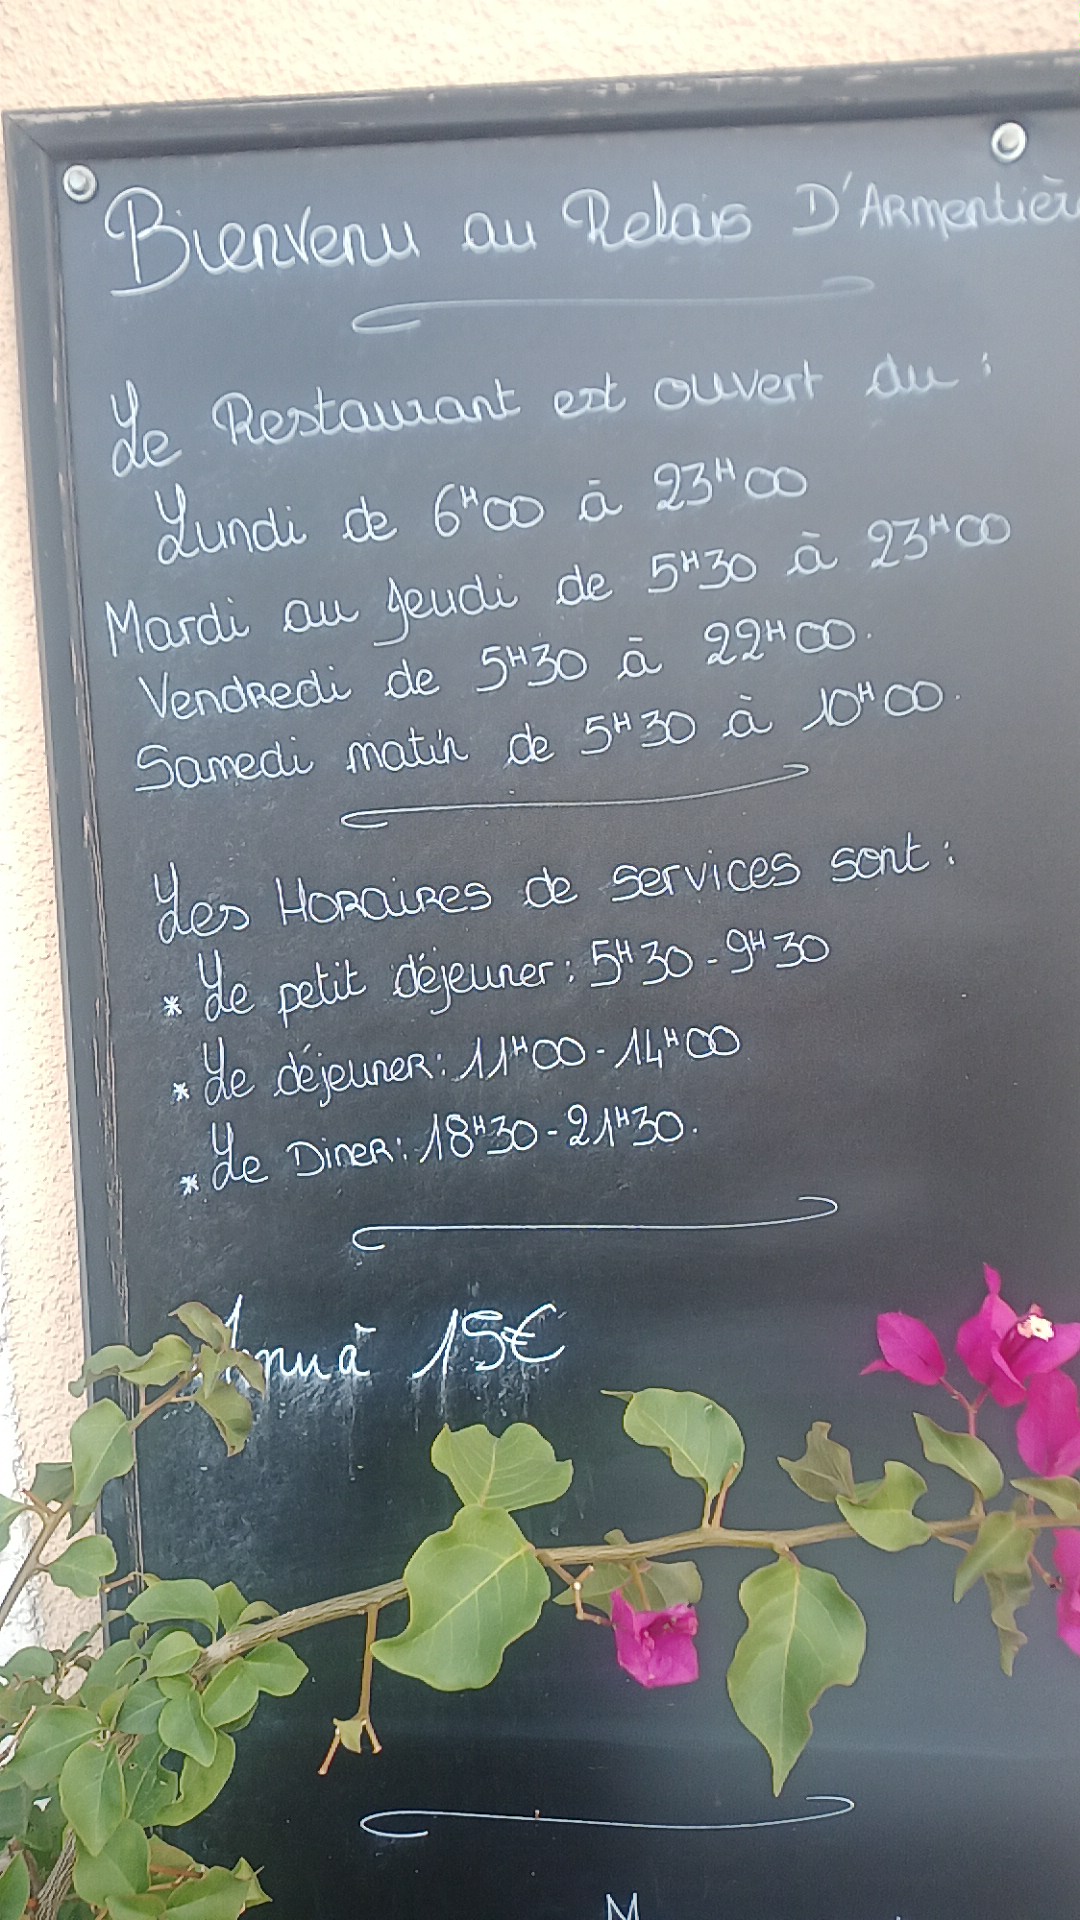 Bienvenu au Relais D'Armentièr
Le Restaurant est ouvert du :
Lundi de 6H00 à 23H00
Mardi au Jeudi de 5H30 à 23H00
Vendredi de 5H30 à 22H00.
Samedi matin de 5H30 à 10H00.
Les Horaires de services sont :
* Le petit déjeuner : 5H30 - 9H30
* Le déjeuner : 11H00 - 14H00
* Le Diner : 18H30 - 21H30.
à 15€
M